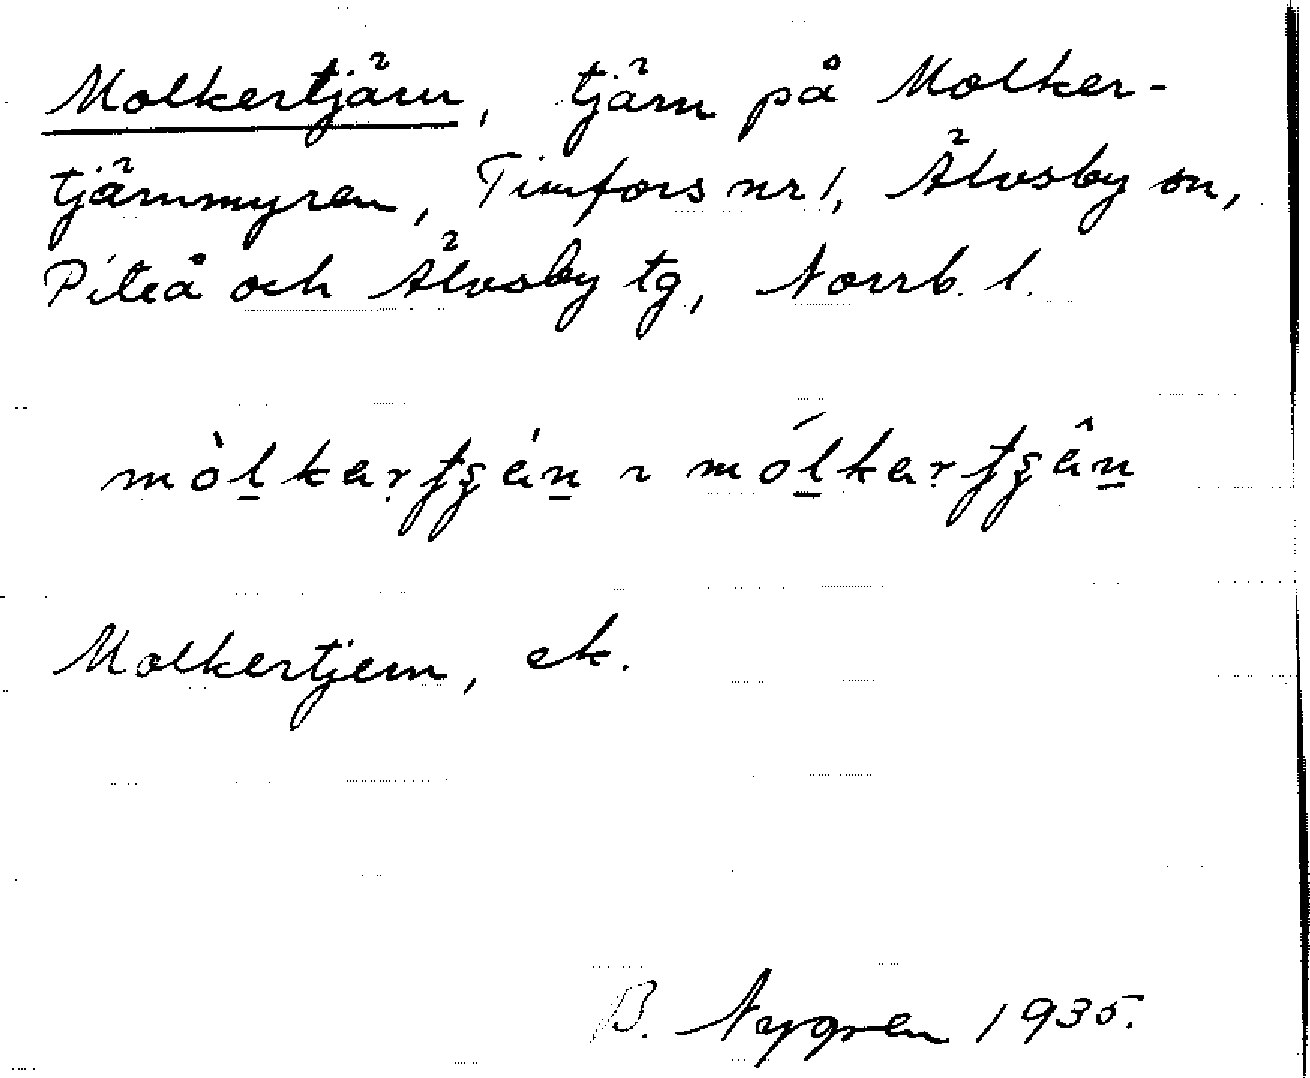 Molkertjärn, tjärn på Molker-
tjärnmyren, Timfors nr 1, Älvsby sn,
Piteå och Älvsby tg, Norrb. l.
Molkertjern, ek.
B. Nygren 1935.